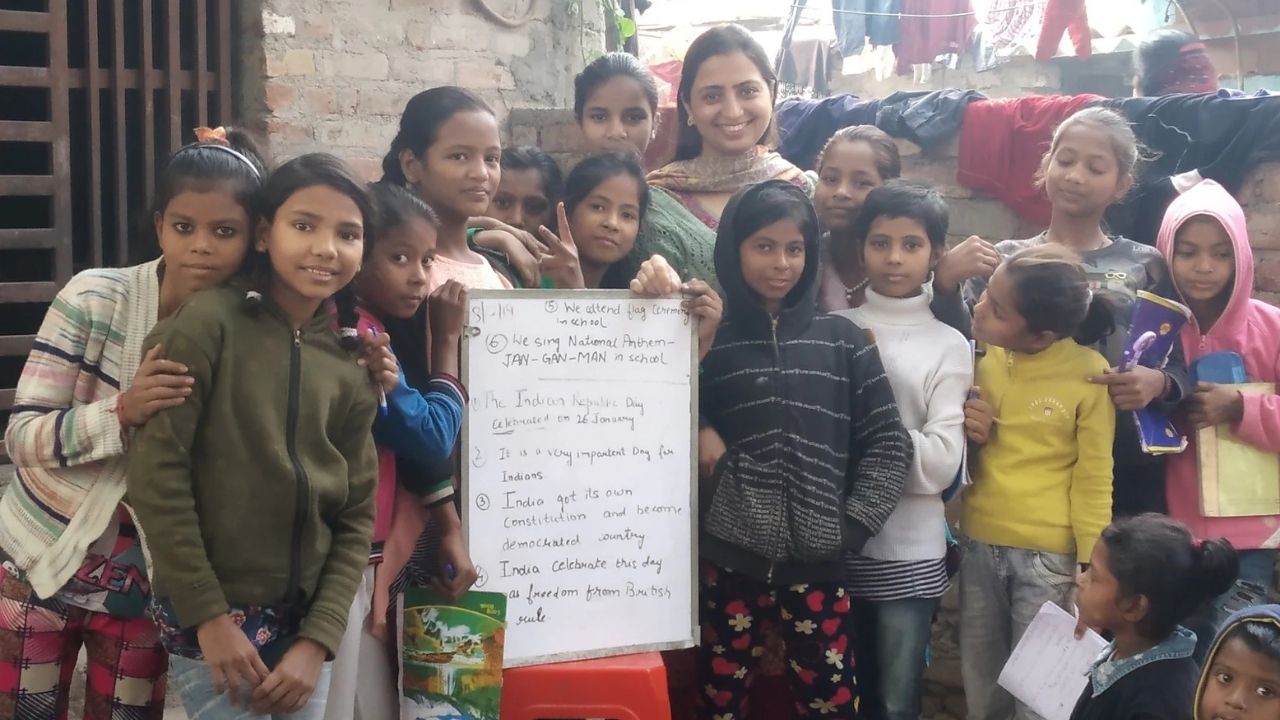 ⑤ We attend flag Ceremeny
in school
⑥ We sing National Anthem-
JAN-GAN-MAN in school
The Indian Republic Day
Celebrated on 26 January
2 It is a very important Day for
Indians
③ India got its own
constitution and become
democrated country
4 India celebrate this day
as freedom from British
rule.